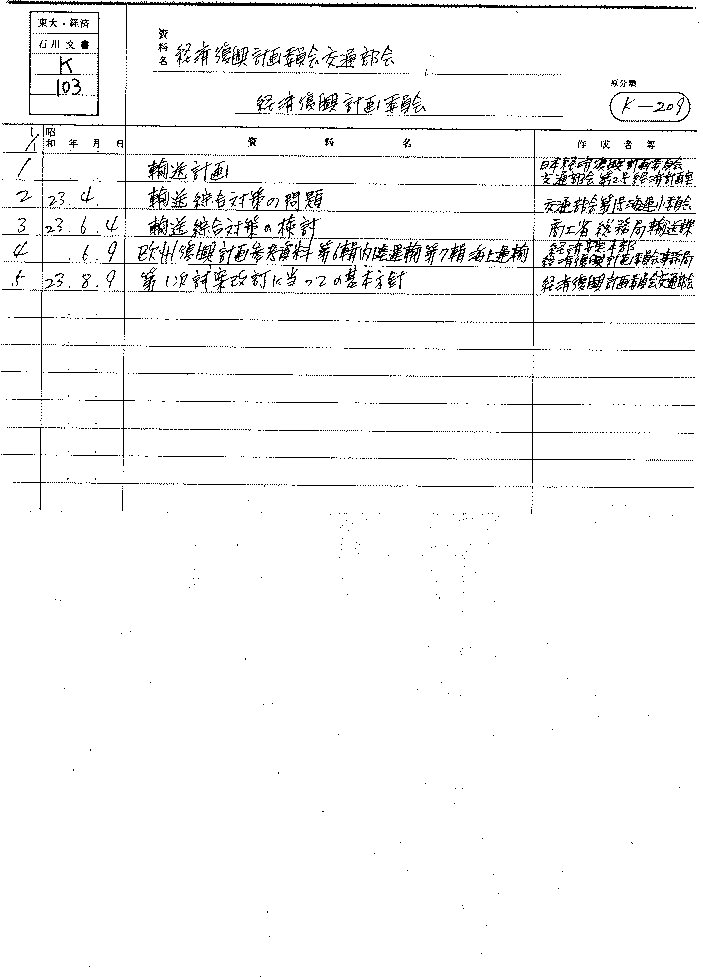 東大・経済
石川文書
K
103
資料名 経済復興計画委員会交通部会
経済復興計画委員会
原分類
K-209
昭和 年 月 日 資料名 作成者等
1 輸送計画 日本経済復興計画委員会
交通部会 第2号 経済計画室
2 23. 4. 輸送綜合対策の問題 交通部会 海運小委員会
3 23. 6. 4 輸送綜合対策の検討 商工省 総務局 輸送課
4 6. 9 欧州復興計画参考資料 第6輯内陸運輸 第7輯 海上運輸 経済安定本部
経済復興計画委員会事務局
5 23. 8. 9 第1次試案改訂に当っての基本方針 経済復興計画委員会交通部会